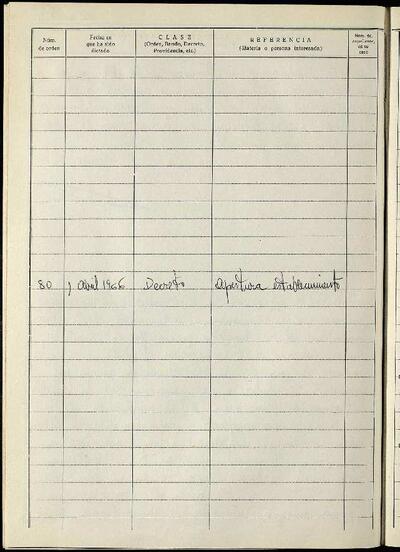 Núm. de orden
Fecha en que ha sido dictada
CLASE
(Orden, Bando, Decreto, Providencia, etc.)
REFERENCIA
(Materia o persona interesada)
80 1 Abril 1966 Decreto apertura establecimiento